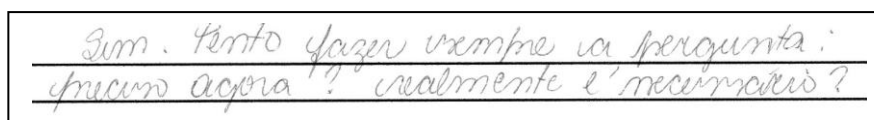 Sim. Tento fazer sempre a pergunta:
preciso agora? realmente é necessário?